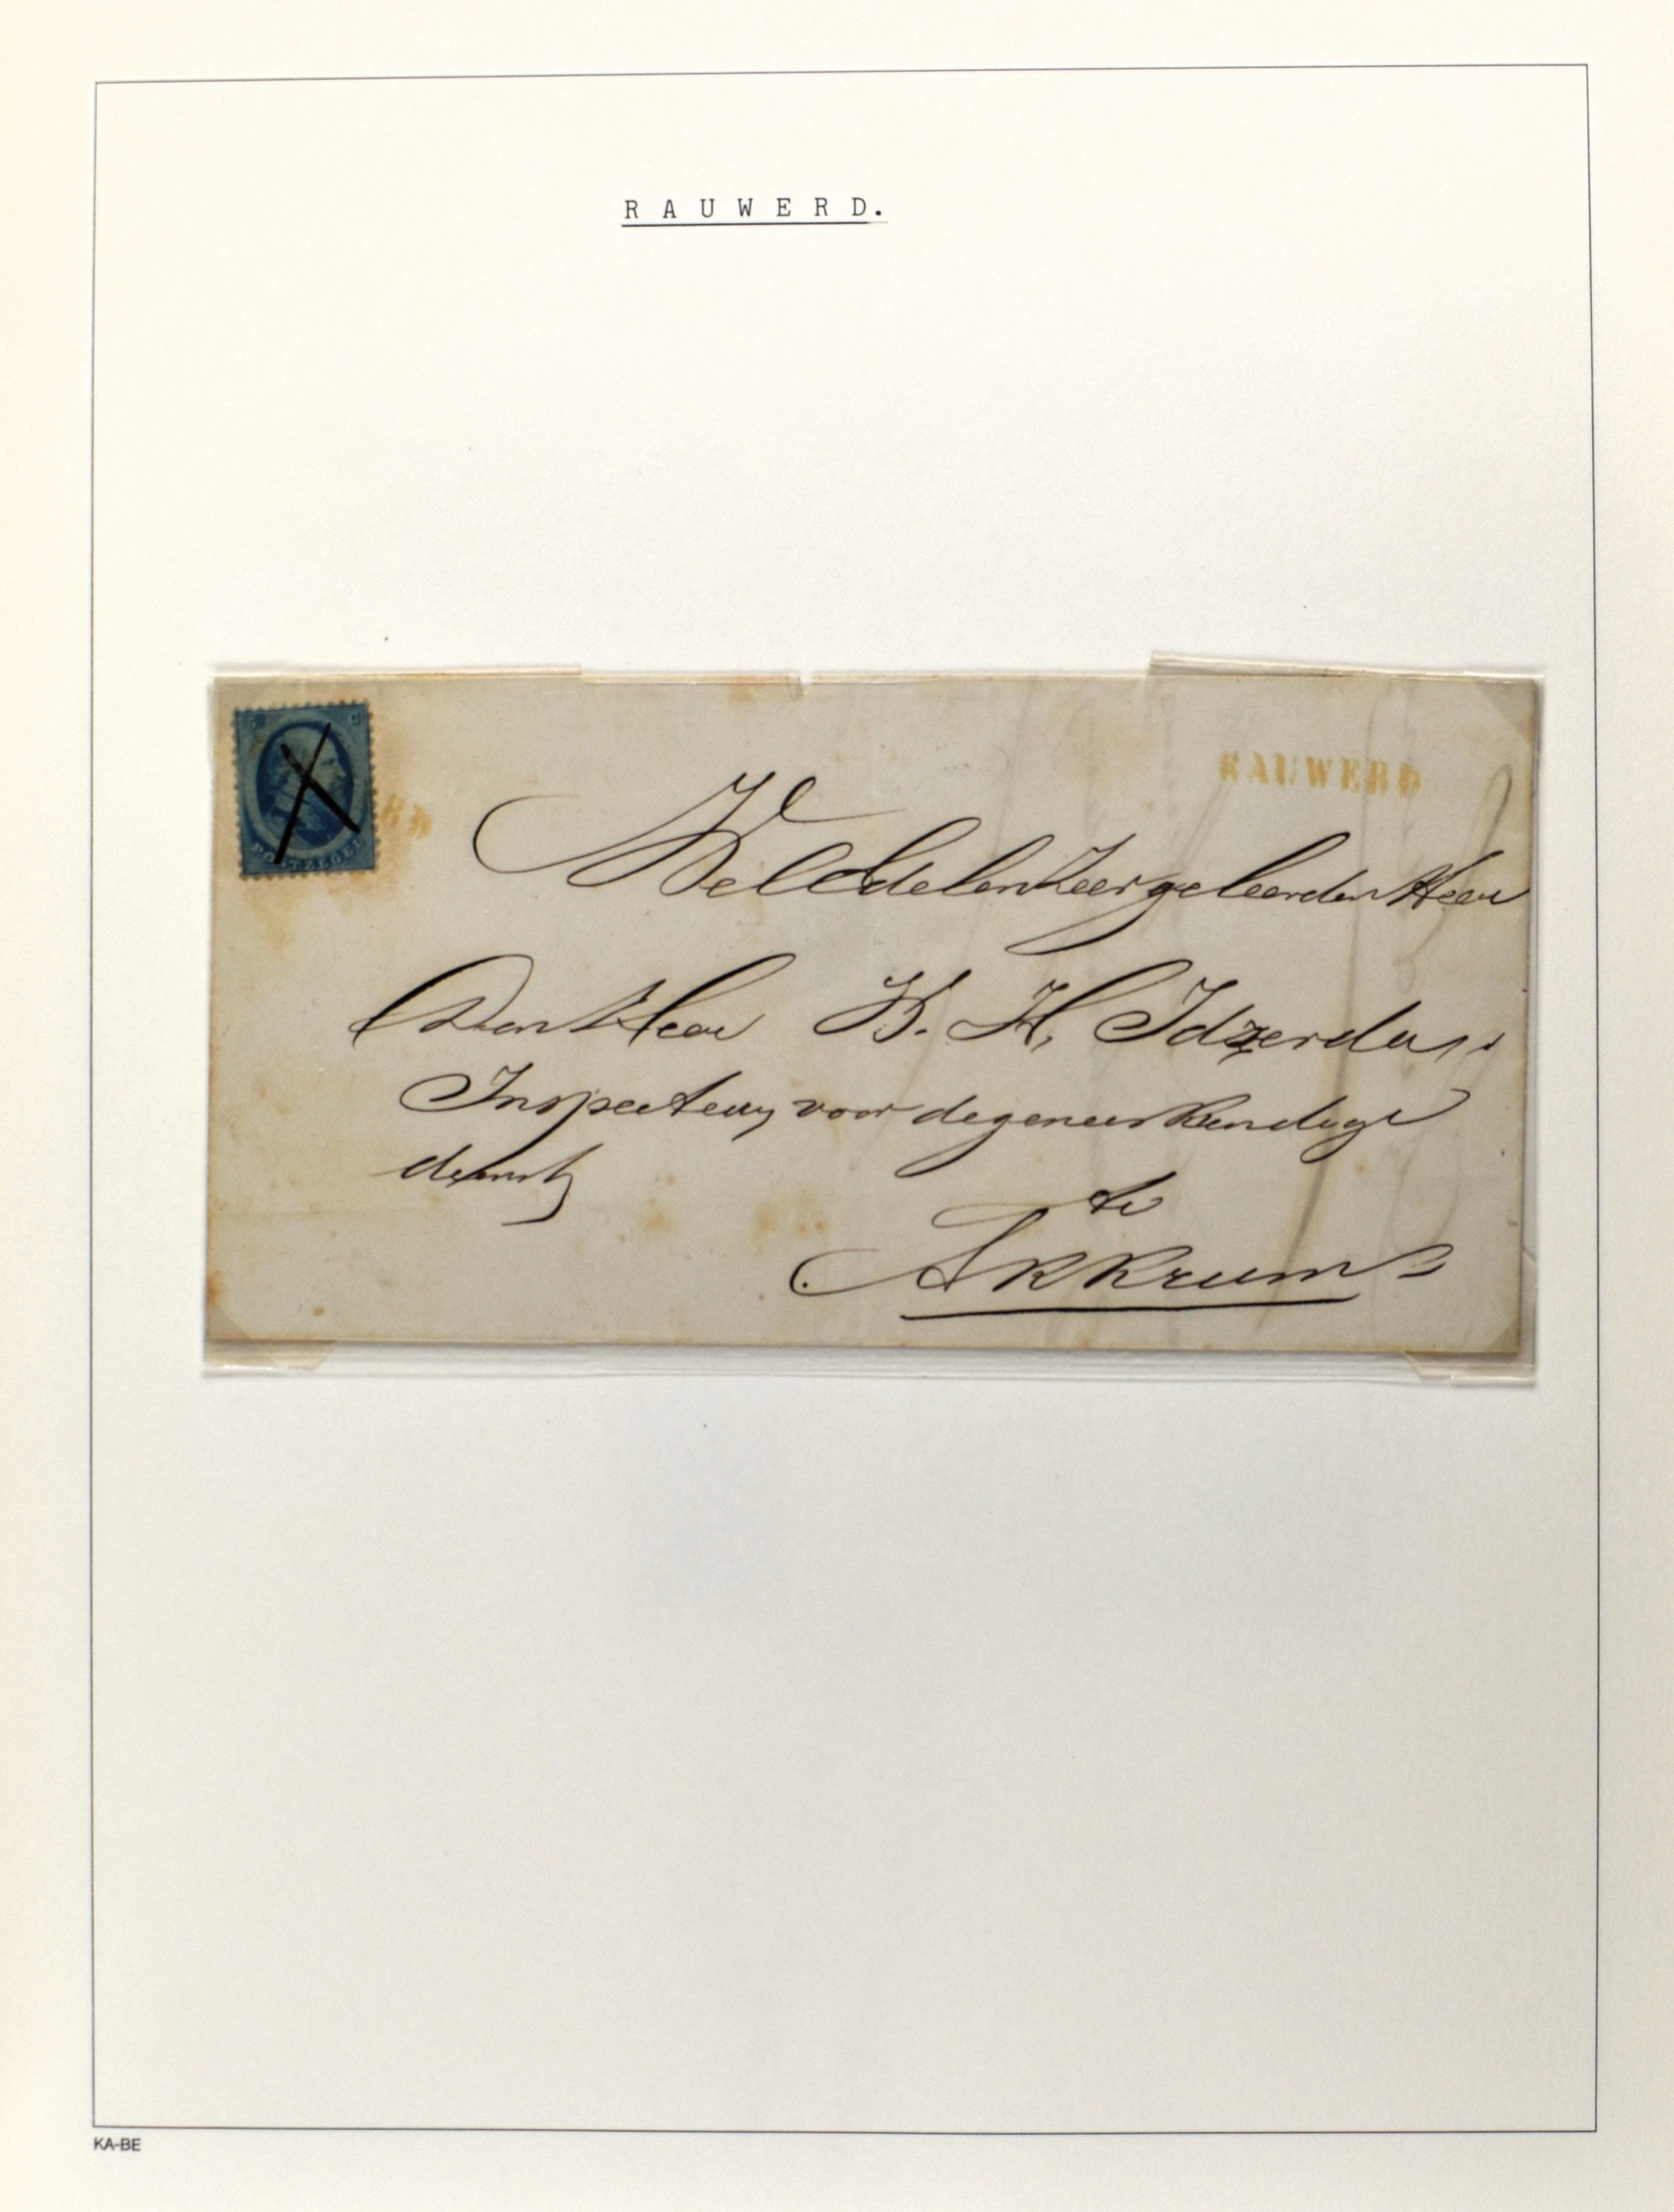 R A U W E R D.
5 C
POSTZEGEL
RD
RAUWERD
WelEdelenZeergeleerden Heer
Den Heer W. H. Idzerda,
Inspecteur voor de geneeskundige
dienst
te
Akkrum
KA-BE